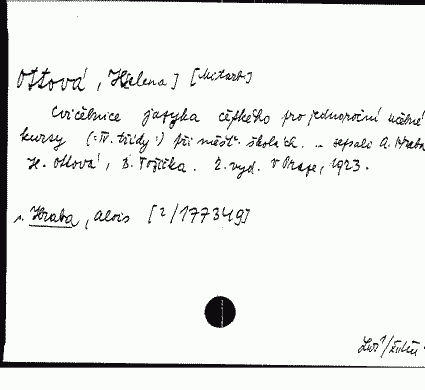 Ottová, Helena] [Mitarb]
Cvičebnice jazyka českého pro jednoroční učebné
kursy (:IV. třídy:) při měšť. školách. .. sepsali A. Hraba
H. Ottová, B. Tožička. 2. vyd. V Praze, 1923.
s. Hraba, Alois [2/177349]